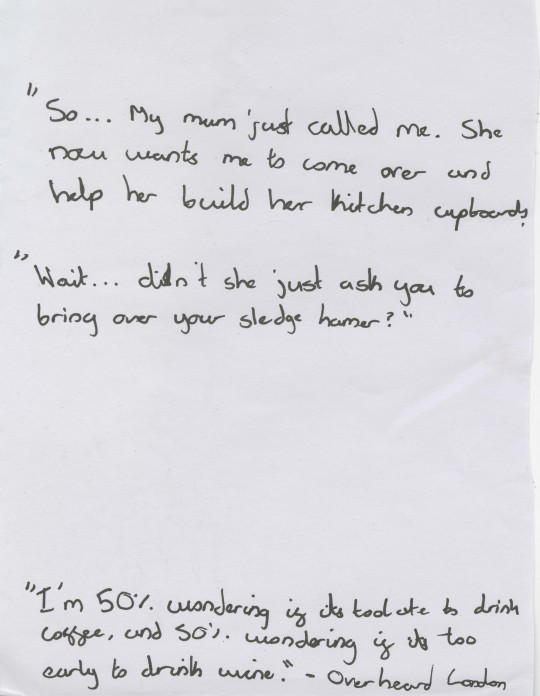 "So... My mum just called me. She
now wants me to come over and
help her build her kitchen cupboards"
"Wait... didn't she just ask you to
bring over your sledge hamer?"
"I'm 50% wondering if its too late to drink
coffee, and 50% wondering if its too
early to drink wine." - Overheard London